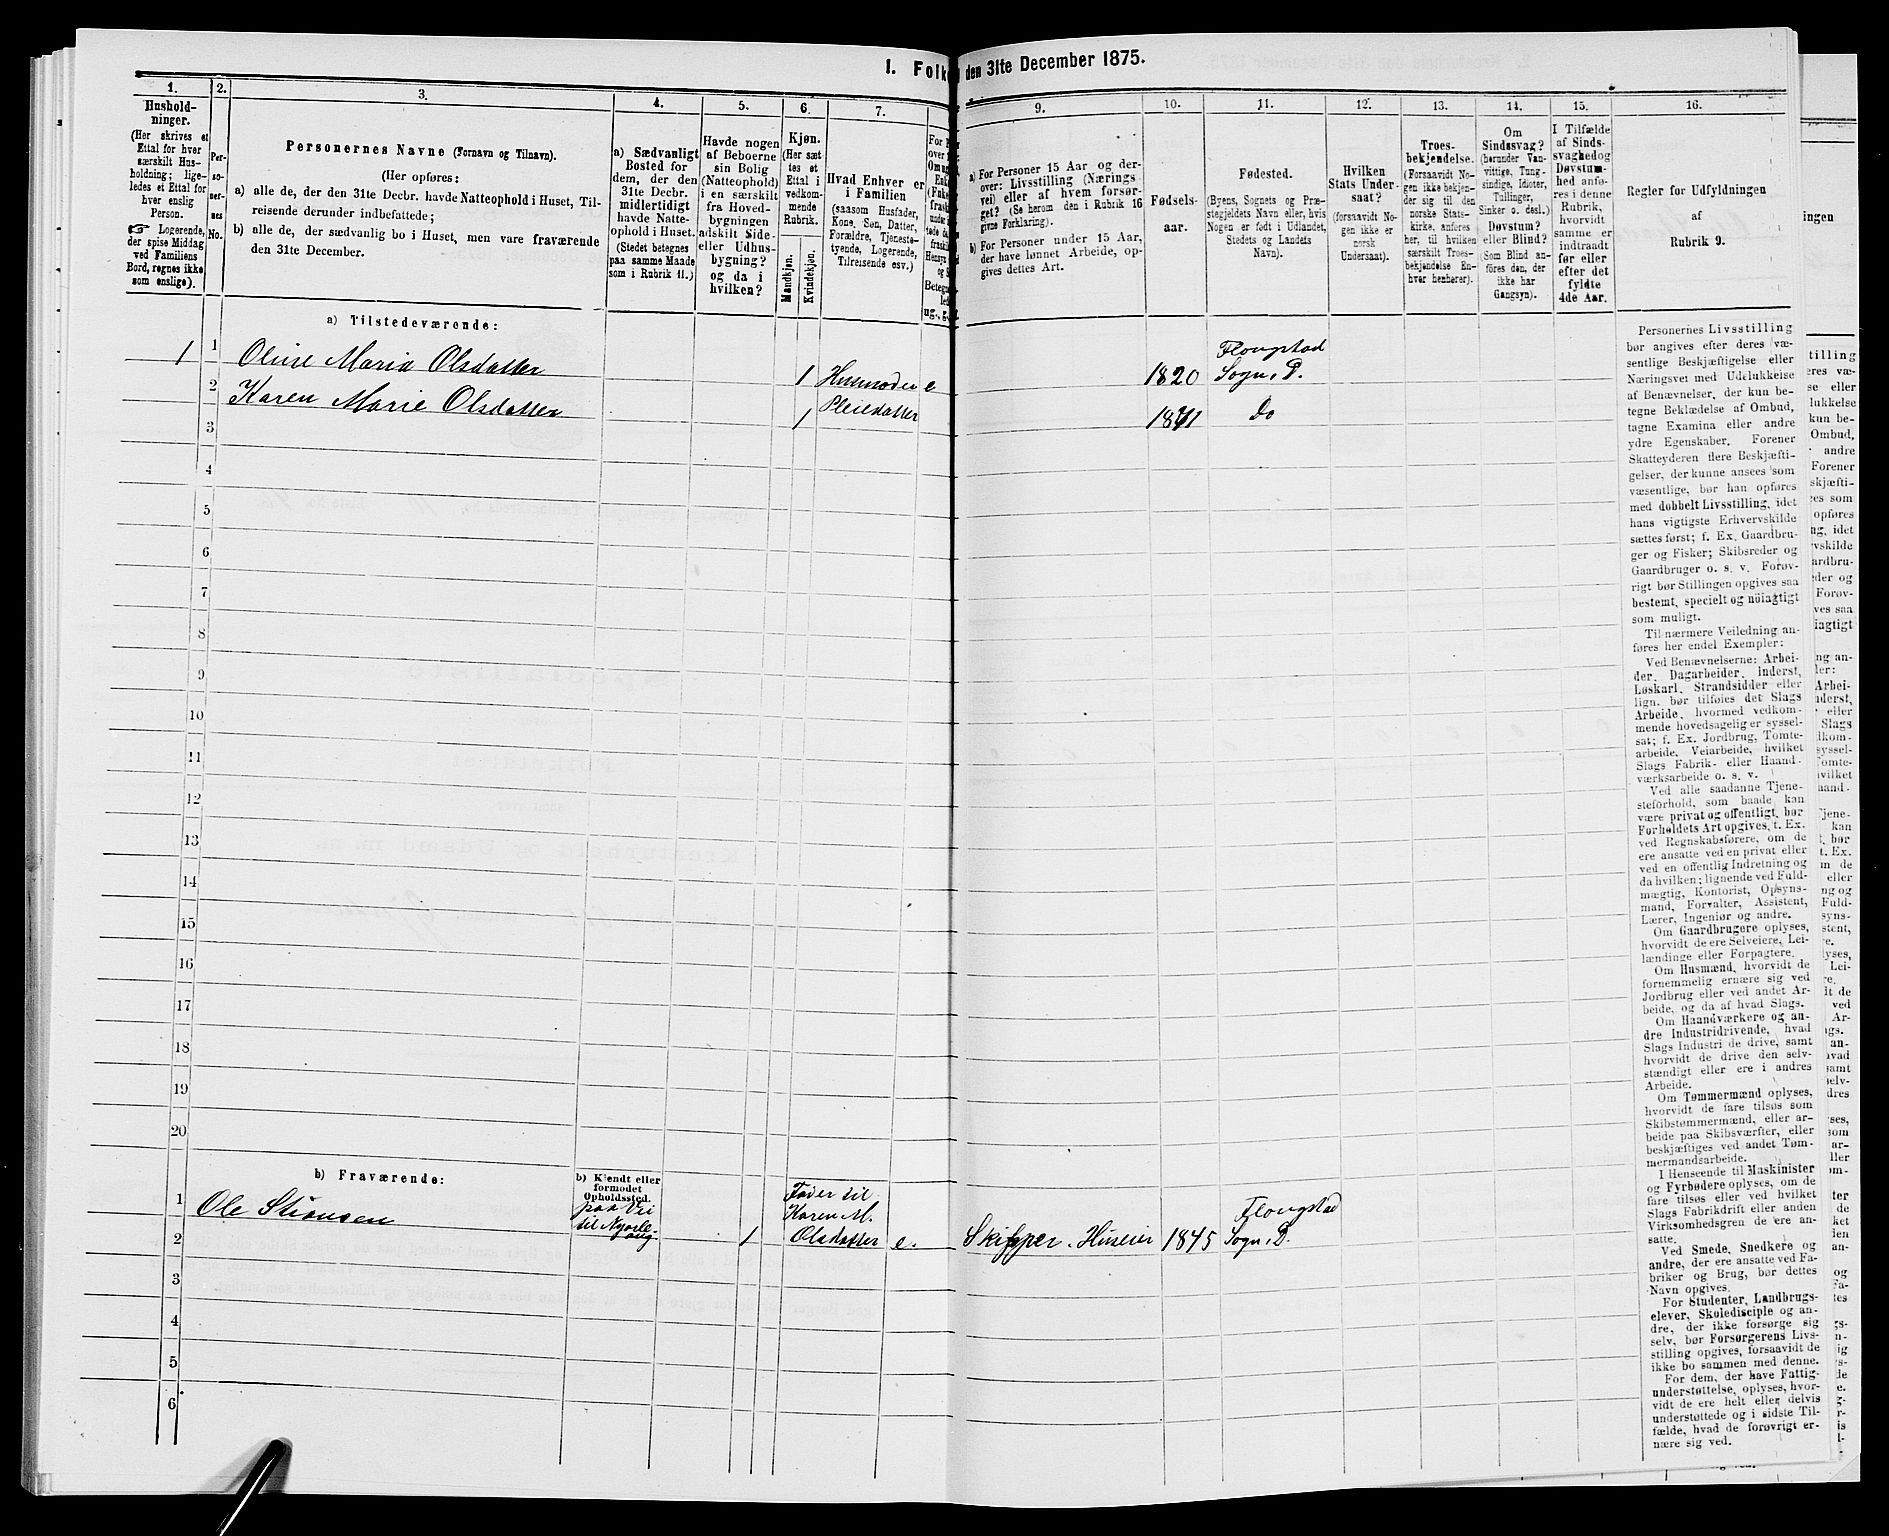 1. Folk
den 31te December 1875.
1.
2.
3.
4.
5.
6.
7.
9.
10.
11.
12.
13.
14.
15.
16.
Hushold-
ninger.
(Her skrives et
Ettal for hver
særskilt Hus-
holdning; lige-
ledes et Ettal for
hver enslig
Person.
☞ Logerende,
der spise Middag
ved Familiens
Bord, regnes ikke
som enslige).
Per-
so-
ner-
nes
No.
Personernes Navne (Fornavn og Tilnavn).
(Her opføres:
a) alle de, der den 31te Decbr. havde Natteophold i Huset, Til-
reisende derunder indbefattede;
b) alle de, der sædvanlig bo i Huset, men vare fraværende
den 31te December.
a) Sædvanligt
Bosted for
dem, der den
31te Decbr.
midlertidigt
havde Natte-
ophold i Huset.
(Stedet betegnes
paa samme Maade
som i Rubrik 11.)
Havde nogen
af Beboerne
sin Bolig
(Natteophold)
i en særskilt
fra Hoved-
bygningen
adskilt Side-
eller Udhus-
bygning?
og da i
hvilken?
Kjøn.
(Her sæt
tes et
Ettal i
vedkom-
mende
Rubrik.
Mandkjøn.
Kvindekjøn.
Hvad Enhver er
i Familien
(saasom Husfader,
Kone, Søn, Datter,
Forældre, Tjeneste-
tyende, Logerende,
Tilreisende osv.)
a) For Personer 15 Aar og der-
over: Livsstilling (Nærings-
vei) eller af hvem forsør-
get? (Se herom den i Rubrik 16
givne Forklaring).
b) For Personer under 15 Aar,
der have lønnet Arbeide, op-
gives dettes Art.
Fødsels-
aar.
Fødested.
(Byens, Sognets og Præ-
stegjeldets Navn eller, hvis
Nogen er født i Udlandet,
Stedets og Landets
Navn).
Hvilken
Stats Under-
saat?
(forsaavidt No-
gen ikke er
norsk
Undersaat).
Troes-
bekjendelse.
(Forsaavidt No-
gen ikke bekjen-
der sig til den
norske Stats-
kirke, anføres
her, til hvilken
særskilt Troes-
bekjendelse En-
hver henhører).
Om
Sindssvag?
(herunder Van-
vittige, Tung-
sindige, Idioter,
Tullinger,
Sinker o. desl.)
Døvstum?
eller Blind?
(Som Blind an-
føres den, der
ikke har
Gangsyn).
I Tilfælde
af Sinds-
svaghed og
Døvstum-
hed anfø-
res i denne
Rubrik,
hvorvidt
samme er
indtraadt
før eller
efter det
fyldte
4de Aar.
Regler for Udfyldningen
af
Rubrik 9.
a) Tilstedeværende:
1 1 Oline Maria Olsdatter 1 Husmoder e 1820 Flougstad Sogn, P.
2 Karen Marie Olsdatter 1 Pleiedatter 1871 Do
3
4
5
6
7
8
9
10
11
12
13
14
15
16
17
18
19
20
b) Fraværende:
b) Kjendt eller
formodet
Opholdssted.
1 Ole paa Vei til 1 Fader til Karen M. Olsdatter e. Skipper. Huseier 1845 Flougstad Sogn, P.
2
3
4
5
6
Personernes Livsstilling
bør angives efter deres væ-
sentlige Beskjæftigelse eller
Næringsvei med Udelukkelse
af Benævnelser, der kun be-
tegne Beklædelse af Ombud,
tagne Examina eller andre
ydre Egenskaber. Forener
Skatteyderen flere Beskjæfti-
gelser, der kunne ansees som
væsentlige, bør han opføres
med dobbelt Livsstilling, idet
hans vigtigste Erhvervskilde
sættes først; f. Ex. Gaardbru-
ger og Fisker; Skibsreder og
Gaardbruger o. s. v. Forøv-
rigt bør Stillingen opgives saa
bestemt, specielt og nøiagtigt
som muligt.
Til nærmere Veiledning an-
føres her endel Exempler:
Ved Benævnelserne: Arbei-
der, Dagarbeider, Inderst,
Løskarl, Strandsidder eller
lign. bør tilføies det Slags
Arbeide, hvormed vedkom-
mende hovedsagelig er syssel-
sat; f. Ex. Jordbrug, Tomte-
arbeide, Veiarbeide, hvilket
Slags Fabrik- eller Haand-
værksarbeide o. s. v.
Ved alle saadanne Tjene-
steforhold, som baade kan
være privat og offentligt, bør
Forholdets Art opgives, t. Ex.
ved Regnskabsførere, om de
ere ansatte ved en privat eller
ved en offentlig Indretning og
da hvilken; lignende ved Fuld-
mægtig, Kontorist, Opsyns-
mand, Forvalter, Assistent,
Lærer, Ingeniør og andre.
Om Gaardbrugere oplyses,
hvorvidt de ere Selveiere, Lei-
lændinge eller Forpagtere.
Om Husmænd, hvorvidt de
fornemmelig ernære sig ved
Jordbrug eller ved andet Ar-
beide, og da af hvad Slags.
Om Haandværkere og an-
dre Industridrivende, hvad
Slags Industri de drive, samt
hvorvidt de drive den selv-
stændigt eller ere i andres
Arbeide.
Om Tømmermænd oplyses,
hvorvidt de fare tilsøs som
Skibstømmermænd, eller ar-
beide paa Skibsværfter, eller
beskjæftiges ved andet Tøm-
mermandsarbeide.
I Henseende til Maskinister
og Fyrbødere oplyses, om de
fare tilsøs eller ved hvilket
Slags Fabrikdrift eller anden
Virksomhedsgren de ere an-
satte.
Ved Smede, Snedkere og
andre, der ere ansatte ved Fa-
briker og Brug, bør dettes
Navn opgives.
For Studenter, Landbrugs-
elever, Skoledisciple og an-
dre, der ikke forsørge sig
selv, bør Forsørgerens Livs-
stilling opgives, forsaavidt de
ikke bo sammen med denne.
For dem, der have Fattig-
understøttelse, oplyses, hvor-
vidt de ere helt eller delvis
understøttede og i sidste Til-
fælde, hvad de forøvrigt er-
nære sig ved.